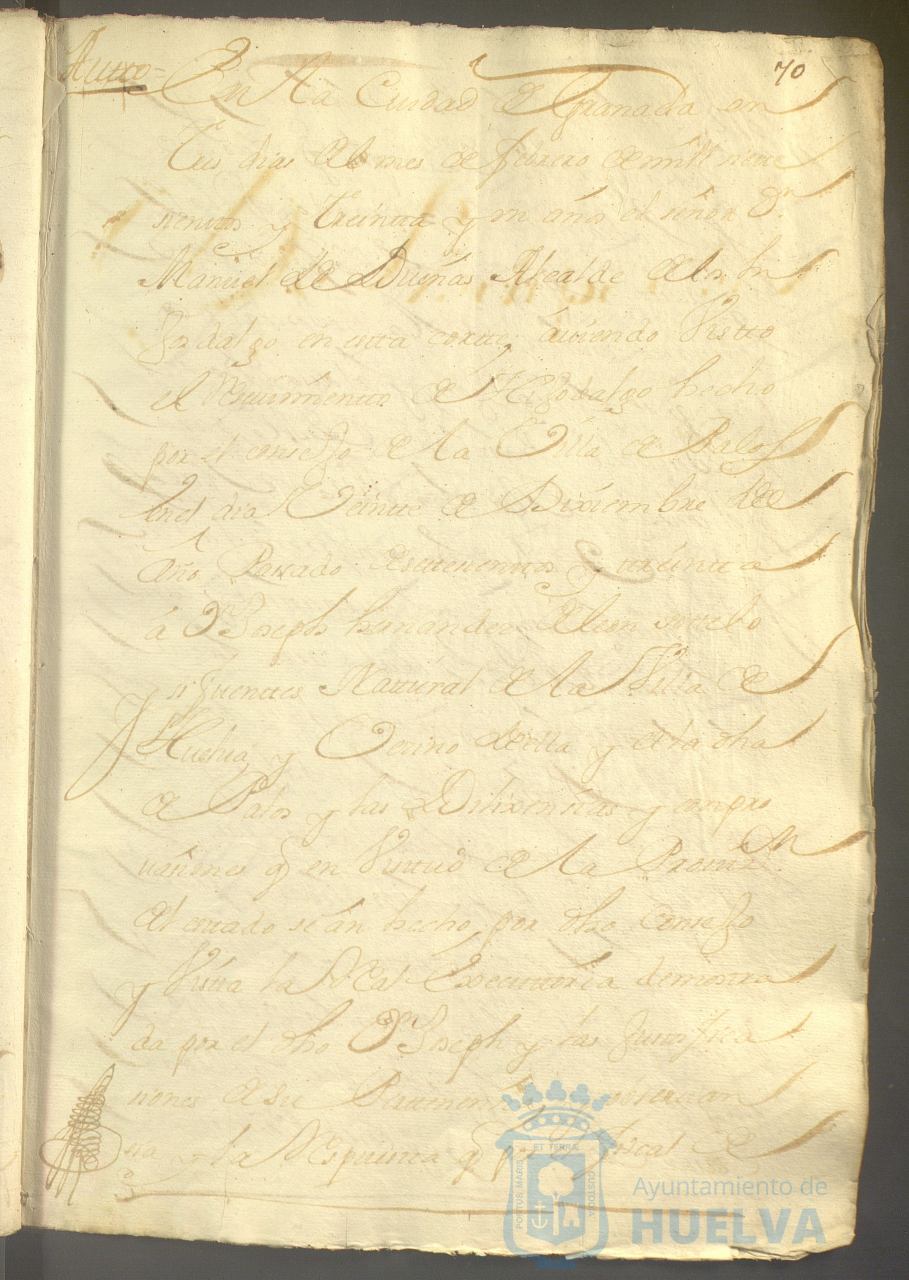 70
Autto = En la Ciudad de Granada en
tres dias del mes de febrero de mill siete
sientos y treintta y un años el señor Dn
Manuel de Dueñas Alcalde de los hi
Jos dalgo en esta Cortte, auiendo Vistto
el Reciuimiento de Hijodalgo hecho
por el consejo de la Villa de Palos
en el dia Veintte de Diziembre del
Año Passado de setesientos y treintta
á Dn Joseph hernandez de leon
y sifuenttes Natural de la Villa de
Huelua y Vezino de ella y de la dha
de Palos y las Dilixensias y compro
uasiones q en Virtud de la Prouin
de el se an hecho por dho Consejo
y Vista la Real Executtoria demostra
da por el dho Dn Joseph y las Justifica
siones de su
y la Respuesta q Fiscal de
ET TERRÆ
PORTUS MARIS
CUSTODIA
Ayuntamiento de
HUELVA